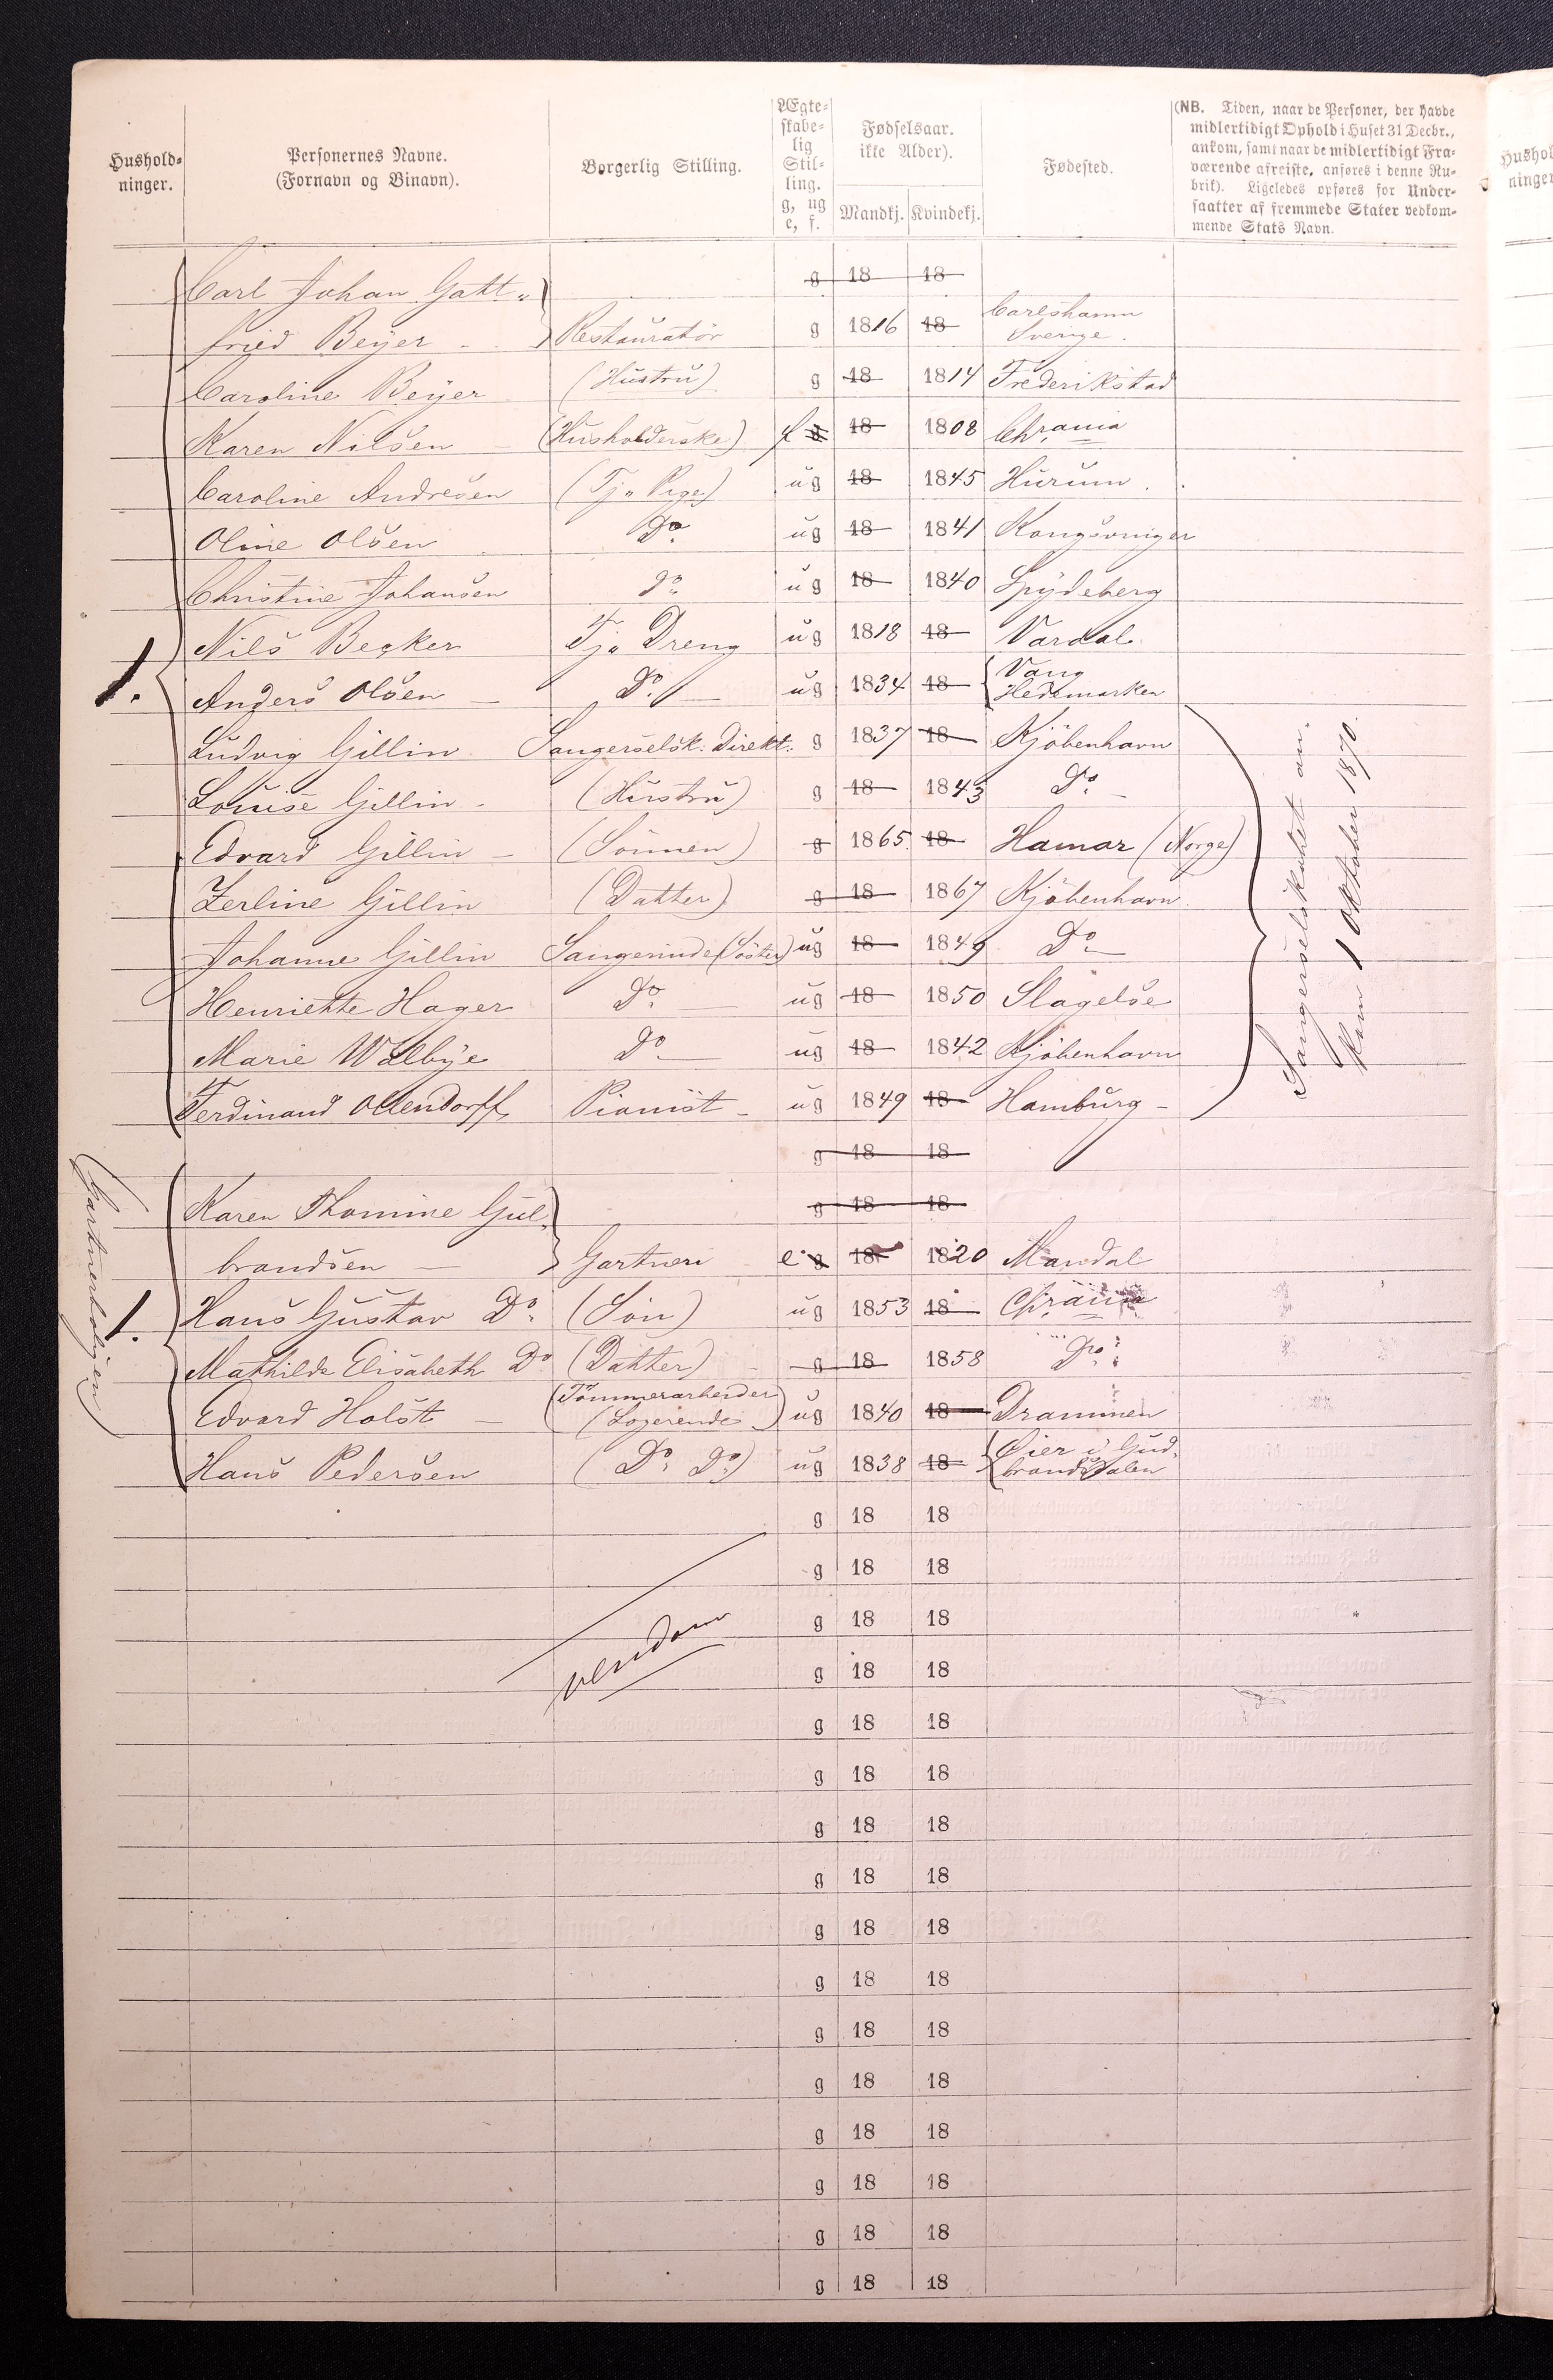 Hushold-
ninger.
Personernes Navne.
(Fornavn og Binavn).
Borgerlig Stilling.
Ægte-
skabe-
lig
Stil-
ling.
g, ug
e, f.
Fødselsaar.
ikke Alder).
Mandkj. Kvindekj.
Fødested.
(NB. Tiden, naar de Personer, der havde
midlertidigt Ophold i Huset 31 Decbr.,
ankom, samt naar de midlertidigt Fra-
værende afreiste, anføres i denne Ru-
brik). Ligeledes opføres for Under-
saatter af fremmede Stater vedkom-
mende Stats Navn.
Hushol
ninger
Carl Johan Gatt- g 18 18
fried Beyer - Restauratör g 1816 18 Carlshamn Sverige.
Caroline Beyer (Hustru) g 18 1814 Frederikstad
Karen Nilsen - (Husholderske) f g 18 1808 Chrania
Caroline Andresen (Tj. Pige) ug 18 1845 Hurum.
Oline Olsen Do ug 18 1841 Kongsvinger
Christine Johansen do ug 18 1840 Spydeberg
Nils Becker Tj. Dreng ug 1818 18 Vardal
1. Anders Olsen - Do - ug 1834 18 Vang Hedemarken
Ludvig Gillin Sangerselsk. Direkt. g 1837 18 Kjöbenhavn
Louise Gillin - (Hustru) g 18 1843 Do -
Edvard Gillin - (Sönnen) g 1865 18 Hamar (Norge)
Zerline Gillin (Datter) g 18 1867 Kjöbenhavn
Johanne Gillin Sangerinde (Söster) ug 18 1849 Do -
Henriette Hager Do - ug 18 1850 Slagelse
Marie Walbye Do - ug 18 1842 Kjöbenhavn
Ferdinand Ollendorff Pianist - ug 1849 18 Hamburg -
Sangerselskabet an-
kom 1 Oktober 1870.
g 18 18
Gartnerboligen
Karen Thomine Gul- g 18 18
brandsen - Gartneri e g 18 1820 Mandal
1. Hans Gustav Do (Sön) ug 1853 18 Chrania
Mathilde Elisabeth Do (Datter) - g 18 1858 Do
Edvard Holst - (Tömmerarbeider (Logerende) ug 1840 18 Drammen
Hans Pedersen (Do Do) ug 1838 18 Öier i Gud- brandsdalen
g 18 18
g 18 18
g 18 18
g 18 18
g 18 18
g 18 18
g 18 18
g 18 18
g 18 18
g 18 18
g 18 18
g 18 18
g 18 18
g 18 18
g 18 18
g 18 18